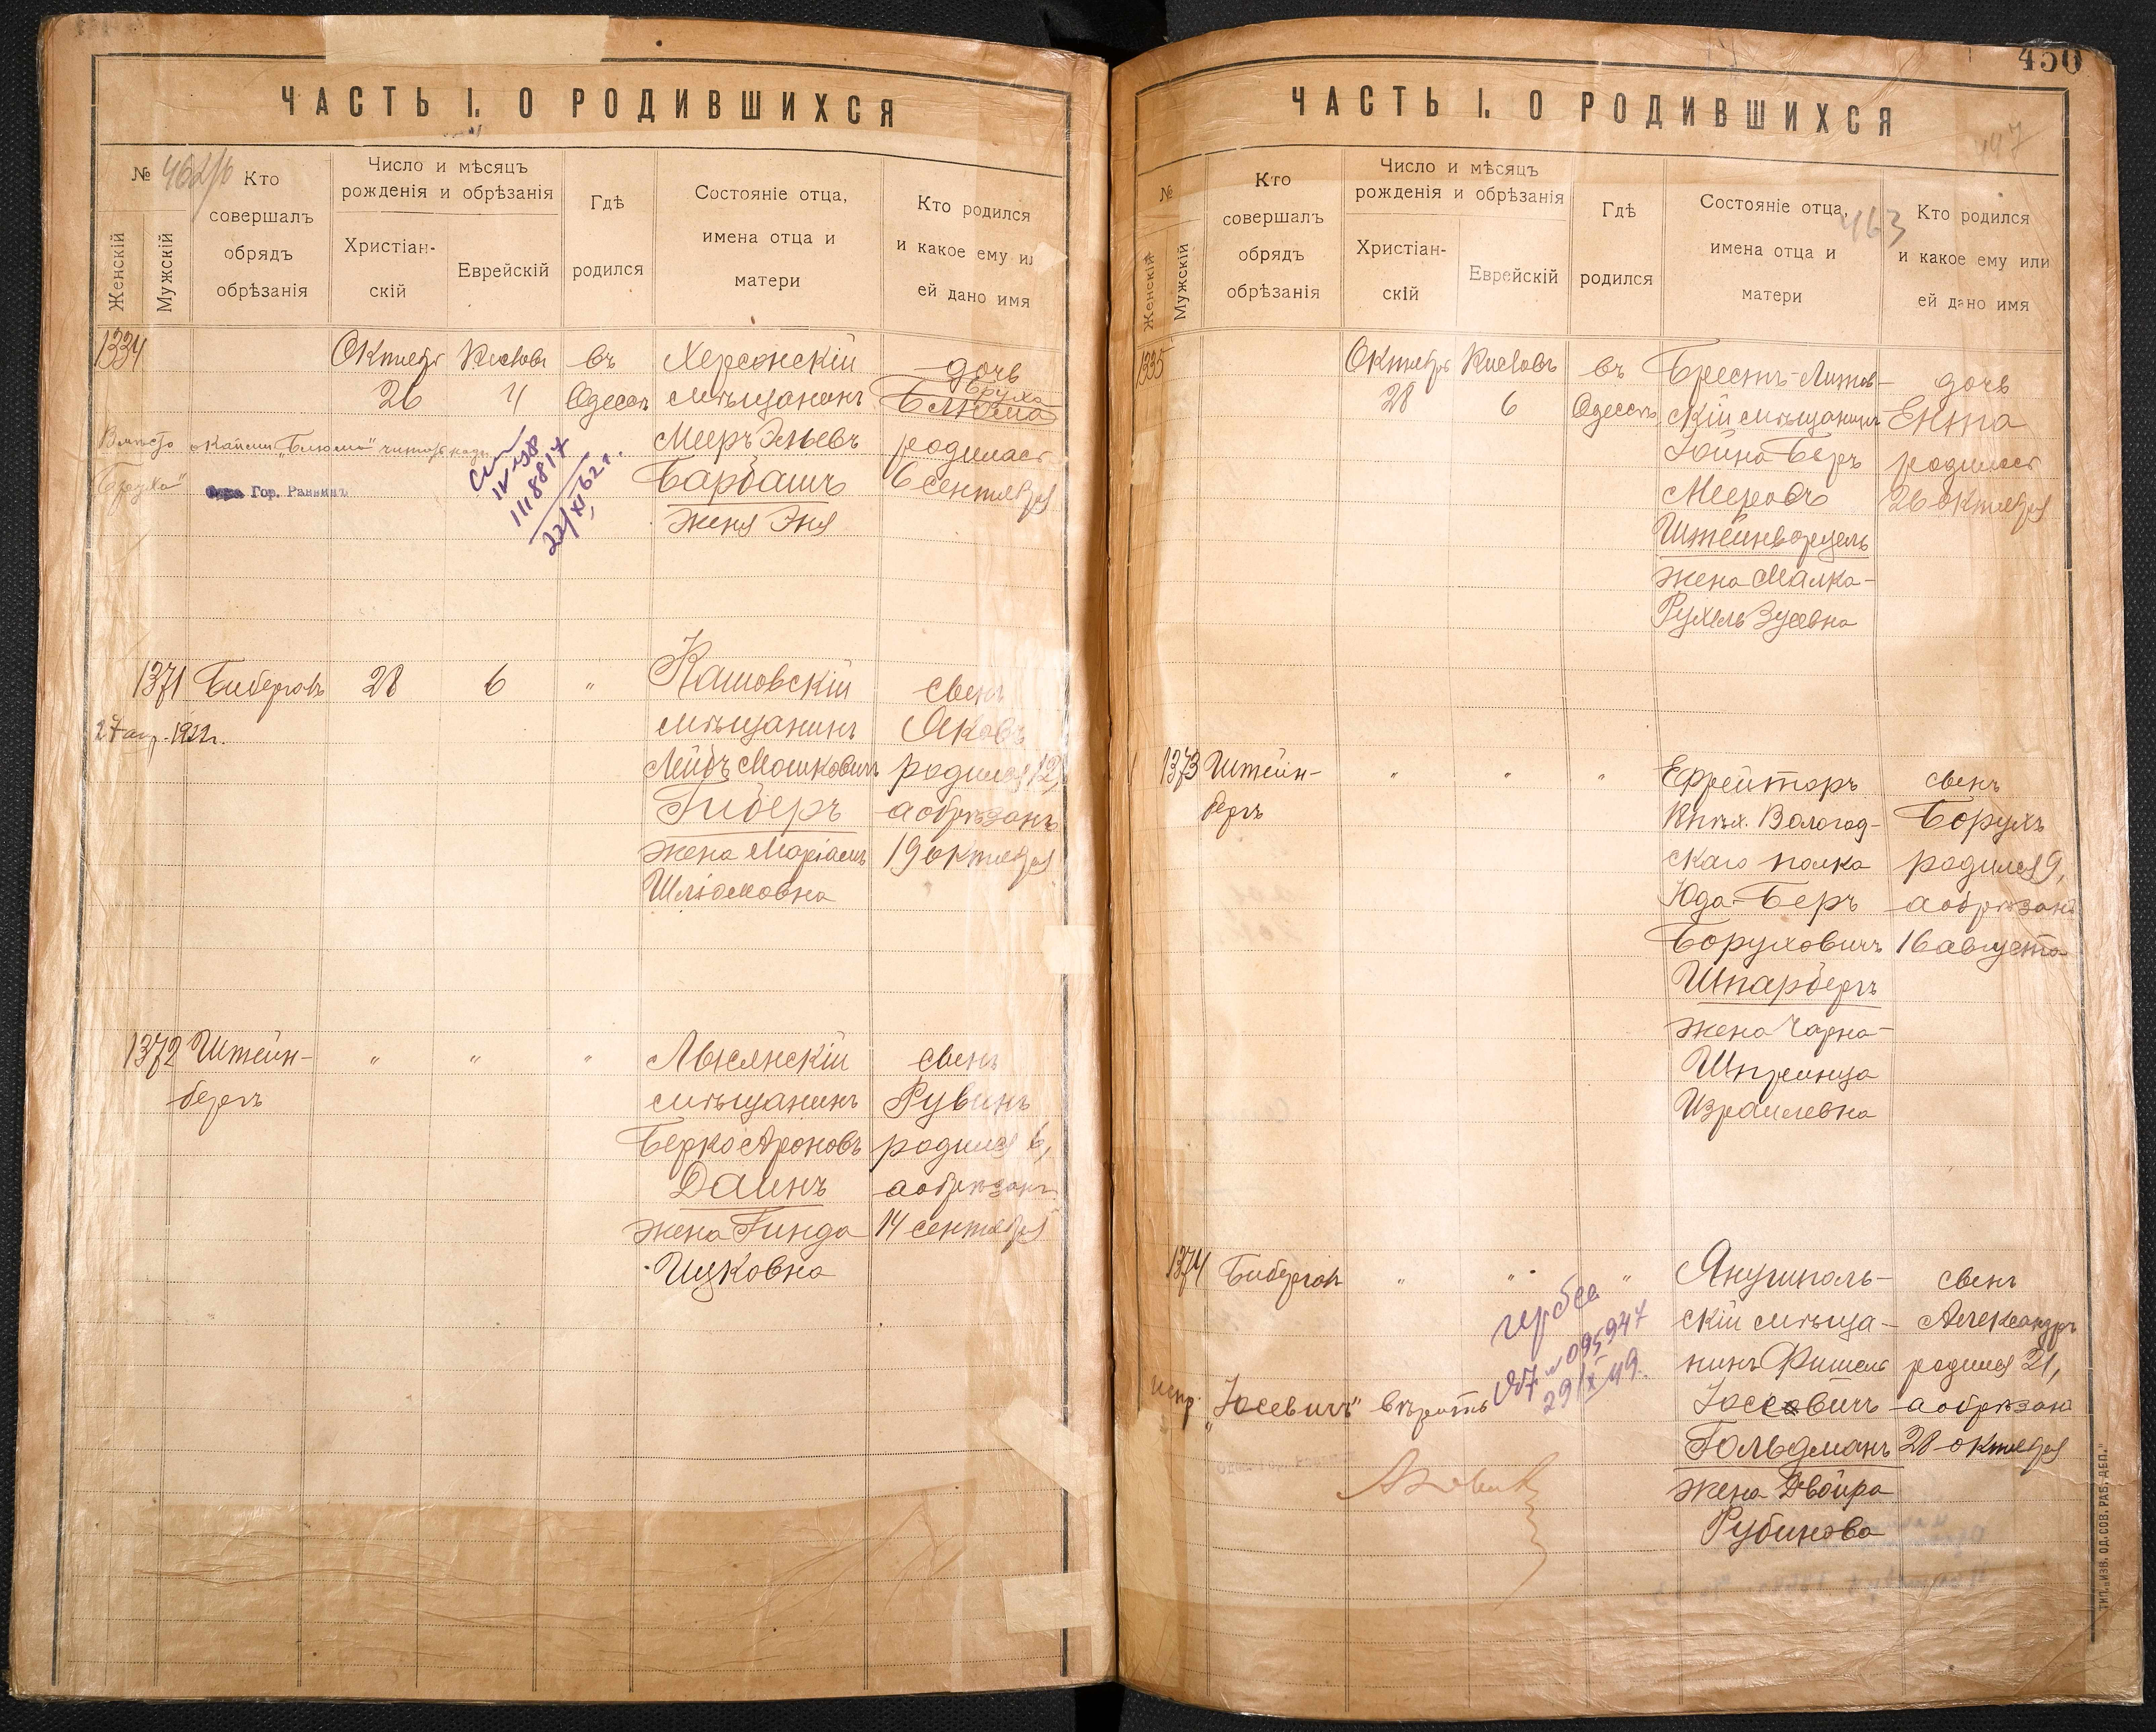 ЧАСТЬ I. О РОДИВШИХСЯ
№ 462/б
Женскій
Мужскій
Кто
совершалъ
обрядъ
обрѣзанія
Число и мѣсяцъ
рожденія и обрѣзанія
Христіан-
скій
Еврейскій
Гдѣ
родился
Состояніе отца,
имена отца и
матери
Кто родился
и какое ему ил
ей дано имя
1334
Октябрь
26
Кислевъ
4
въ
Одессѣ
Херсонскій
мѣщанинъ
Мееръ Эльевъ
Барбашъ
жена Эня
дочь
Бруха
Блюма
родилась
6 сентября
Вмѣсто
"Блюма" читать надъ
"Бруха"
Гор. Раввинъ
IV
1118817
22/XI 62 г.
1371
Биберговъ
28
6
"
27 апр. 1922 г.
Кашовскій
мѣщанинъ
Лейбъ Мошковичъ
Гиберъ
жена Маріамъ
Шліомовна
сынъ
Яковъ
родился 12,
а обрѣзанъ
19 октября
1372
Штейн-
бергъ
"
"
"
Лысянскій
мѣщанинъ
Берко Ароновъ
Даинъ
жена Гинда
Ицковна
сынъ
Рувинъ
родился 6,
а обрѣзанъ
14 сентября
450
ЧАСТЬ I. О РОДИВШИХСЯ
447
463
№
Женскій
Мужскій
Кто
совершалъ
обрядъ
обрѣзанія
Число и мѣсяцъ
рожденія и обрѣзанія
Христіан-
скій
Еврейскій
Гдѣ
родился
Состояніе отца,
имена отца и
матери
Кто родился
и какое ему или
ей дано имя
1335
Октябрь
28
Кислевъ
6
въ
Одессѣ
Брестъ-Литов-
скій мѣщанинъ
Іойна Беръ
Мееровъ
Штейнворцель
жена Малка-
Рухель Зусевна
дочь
Ента
родилась
26 октября
1373
Штейн-
бергъ
"
"
"
Ефрейторъ
Вологод-
скаго полка
Юда-Беръ
Боруховичъ
Шпарбергъ
жена Чарна-
Шпринца
Израилевна
сынъ
Борухъ
родился 9,
а обрѣзанъ
16 августа
1374
Биберговъ
"
"
"
Янушполь-
скій мѣща-
нинъ Фишель
Іосевичъ
Гольдманъ
жена Двойра
Рубинова
сынъ
Александръ
родился 21,
а обрѣзанъ
28 октября
гербсб
№ 095947
29/X 49.
испр. "Іосевичъ" вѣрить
ТИП. „ИЗВ. ОД. СОВ. РАБ. ДЕП."